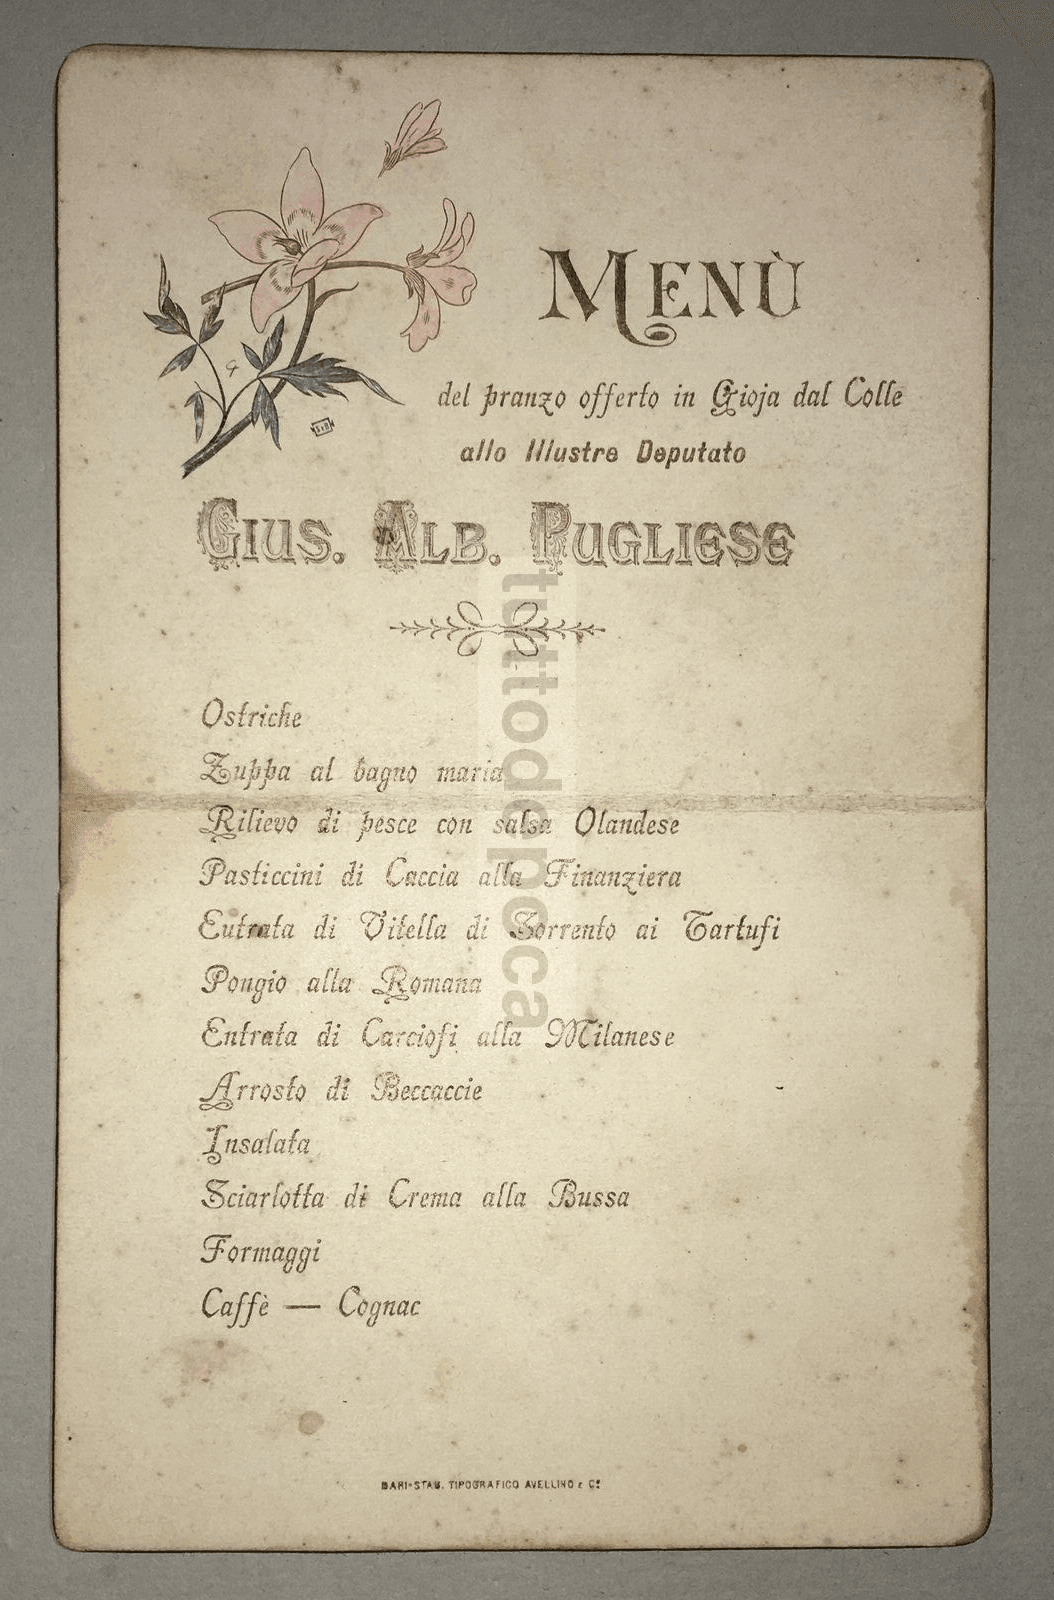 MENÙ
del pranzo offerto in Gioja dal Colle
allo Illustre Deputato
GIUS. ALB. PUGLIESE
Ostriche
Zuppa al bagno maria
Rilievo di pesce con salsa Olandese
Pasticcini di Caccia alla Finanziera
Eutrata di Vitella di Sorrento ai Tartufi
Pongio alla Romana
Entrata di Carciofi alla Milanese
Arrosto di Beccaccie
Insalata
Sciarlotta di Crema alla Bussa
Formaggi
Caffè — Cognac
BARI-STAB. TIPOGRAFICO AVELLINO e C.º
tuttodepoca